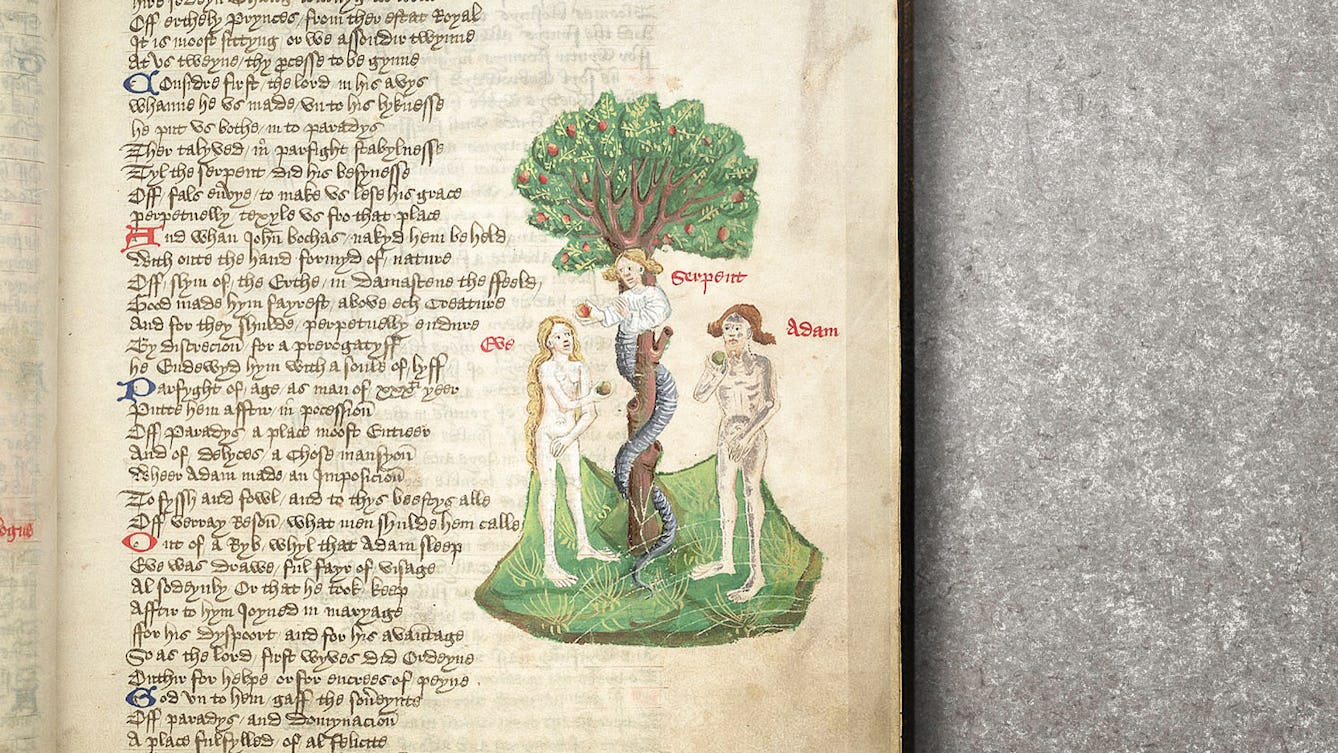 Off erthely Prynces from ther estat Royal
It is moost sittyng or we assondir twynne
At vs tweyne thy pcesse to be gynne
Considre first the lord in his avys
Whanne he vs made vn to his lyknesse
he put vs bothe in to paradys
Ther talyved in parfight stabylnesse
Tyl the serpent did his besynesse
Off fals envye to make vs lese his grace
perpetuelly texyle vs fro that place
And whan John bochas nakyd hem be held
With oute the hand formyd of nature
Off slym of the Erthe in Damascene the ffeeld
Good made hym fayrest above ech Creature
And for they shulde perpetuelly endure
By discrecion for a prerogatyff
he Endewyd hym with a soule of lyff
Parfyght of age as man of xxxti yeer
Putte hem afftir in pocession
Off Paradys a place moost Entieer
And of delyces a Chose mansyon
Wheer Adam made an Imposicion
To fyssh and fowl and to thys beestys alle
Off verray Reson what men shulde hem calle
Out of a Ryb whyl that Adam sleep
Eve was drawe ful fayr of visage
Al sodeynly Or that he took keep
Afftir to hym Joyned in maryage
ffor his dyspoort and for his avantage
So as the lord first wyves did Ordeyne
Outhir for helpe or for encrees of peyne
God vn to hem gaff the soueynte
Off paradys and Domynacion
A place fulfylled of al felicite
Serpent
Eve
Adam